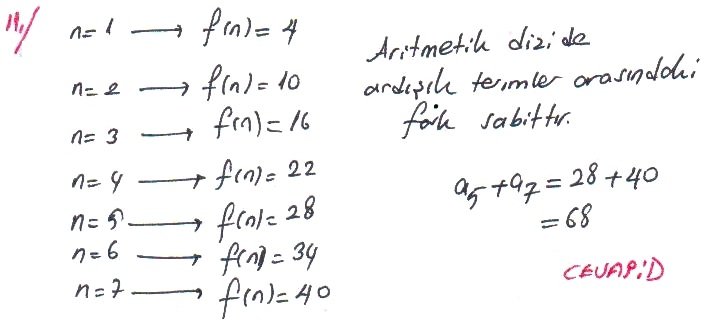 11./
n=1 → f(n)=4
n=2 → f(n)=10
n=3 → f(n)=16
n=4 → f(n)=22
n=5 → f(n)=28
n=6 → f(n)=34
n=7 → f(n)=40
Aritmetik dizide
ardışık terimler arasındaki
fark sabittir.
a₅+a₇=28+40
=68
CEVAP:D